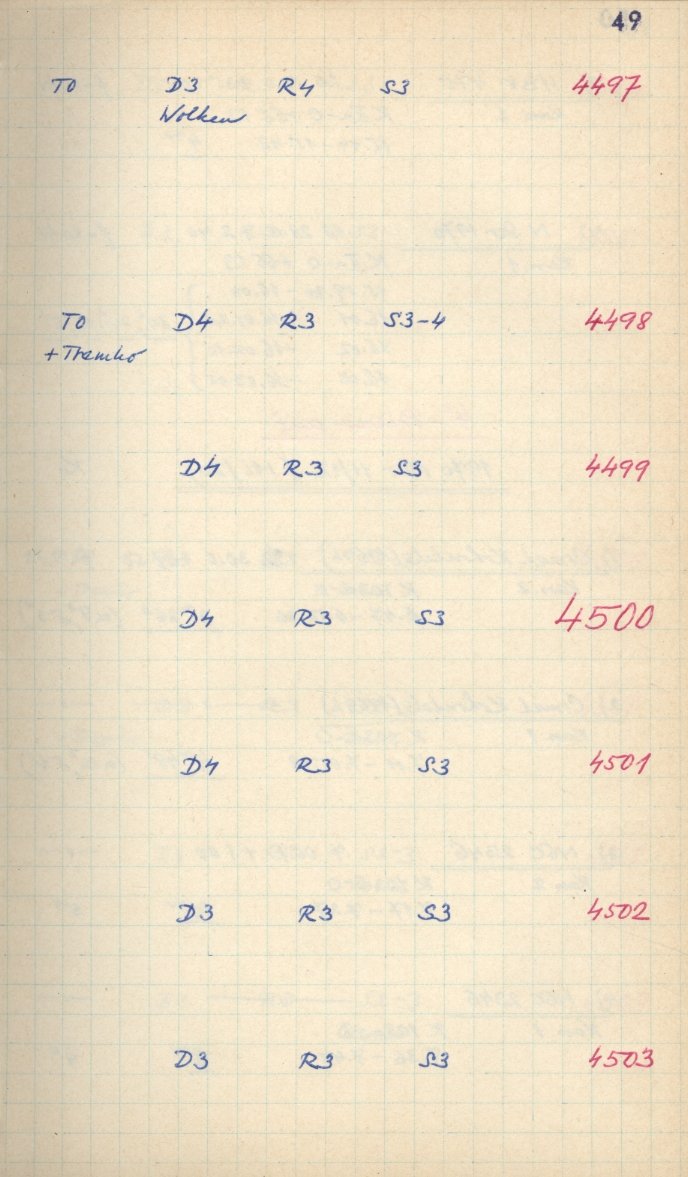 49
TO D3 R4 S3 4497
Wolken
TO D4 R3 S3-4 4498
D4 R3 S3 4499
D4 R3 S3 4500
D4 R3 S3 4501
D3 R3 S3 4502
D3 R3 S3 4503